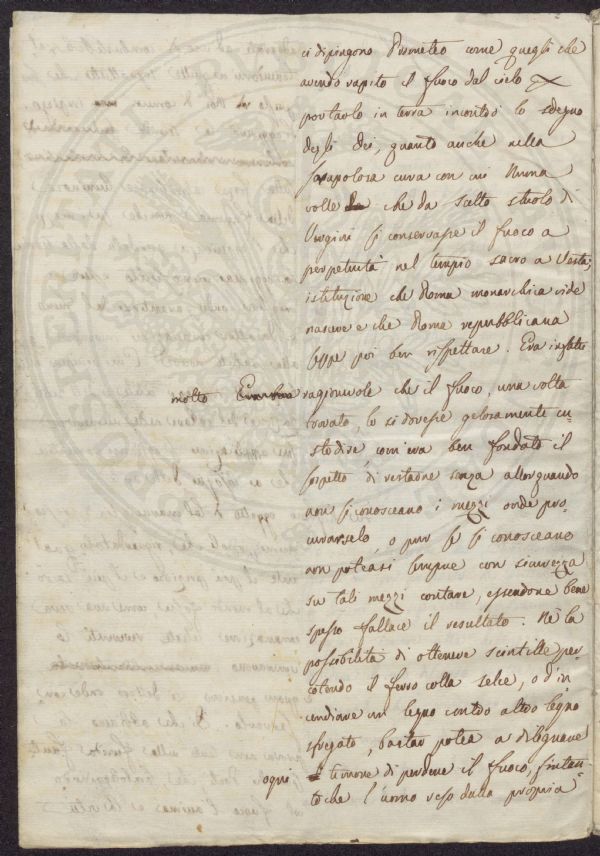 ci dipingono Prometeo come quegli che
avendo rapito il fuoco dal cielo
portarlo in terra incontrò lo sdegno
degli dei, quanto anche nella
scrupolosa cura con cui Numa
volle che da scelto stuolo di
Vergini si conservasse il fuoco a
perpetuità nel tempio sacro a Vesta;
istituzione che Roma monarchica vide
nascere e che Roma repubblicana
seppe poi ben rispettare. Era infatti
molto ragionevole che il fuoco, una volta
trovato, lo si dovesse gelosamente cu-
stodire com'era ben fondato il
sospetto di restarne senza allorquando
non si conosceano i mezzi onde pro-
curarselo, o pur se si conosceano
non poteasi sempre con sicurezza
su tali mezzi contare, essendone bene
spesso fallace il resultato. Nè la
possibilità di ottenere scintille per-
cotendo il ferro colla selce, o d'in-
cendiare un legno contro altro legno
sfregato, bastar potea a dileguare
ogni timore di perdere il fuoco, fintan-
to che l'uomo reso dalla propria